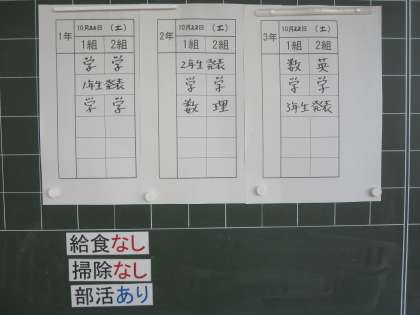 1年 10月22日 (土)
1組 2組
学 学
1年生発表
学 学
2年 10月22日 (土)
1組 2組
2年生発表
学 学
数 理
3年 10月22日 (土)
1組 2組
数 英
学 学
3年生発表
給食なし
掃除なし
部活あり